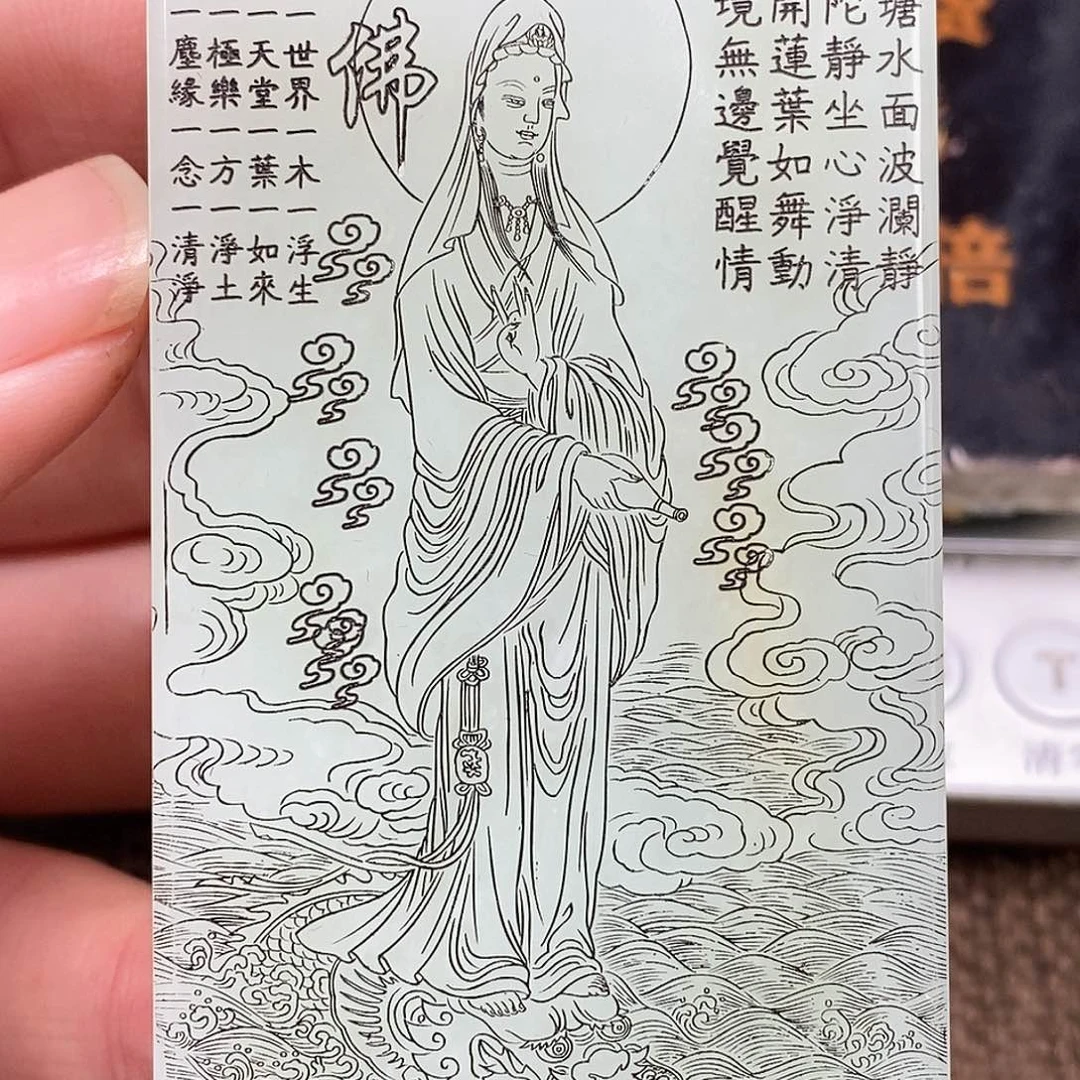 塘水面波瀾靜
陀靜坐心淨清
開蓮葉如舞動
境無邊覺醒情
佛
一世界一木一浮生
一天堂一葉一如來
一極樂一方一淨土
一塵緣一念一清淨
音
T